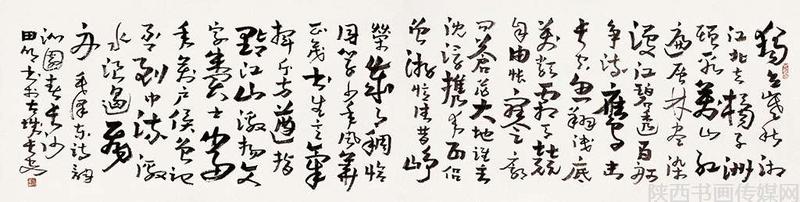 獨立寒秋湘
江北去橘子洲
頭看萬山红
遍层林尽染
漫江碧透百舸
争流鹰击
长空鱼翔浅底
萬類霜天競
自由怅寥廓
问蒼茫大地谁主
沈浮携来百侣
曾游憶往昔峥
嵘岁月稠恰
同学少年风華
正茂书生意氣
挥斥方遒指
點江山激扬文
字粪土当
年萬户侯曾记
否到中流击
水浪遏飛
舟 毛泽东诗词
沁園春长沙
书于古城长安
陕西书画传媒网